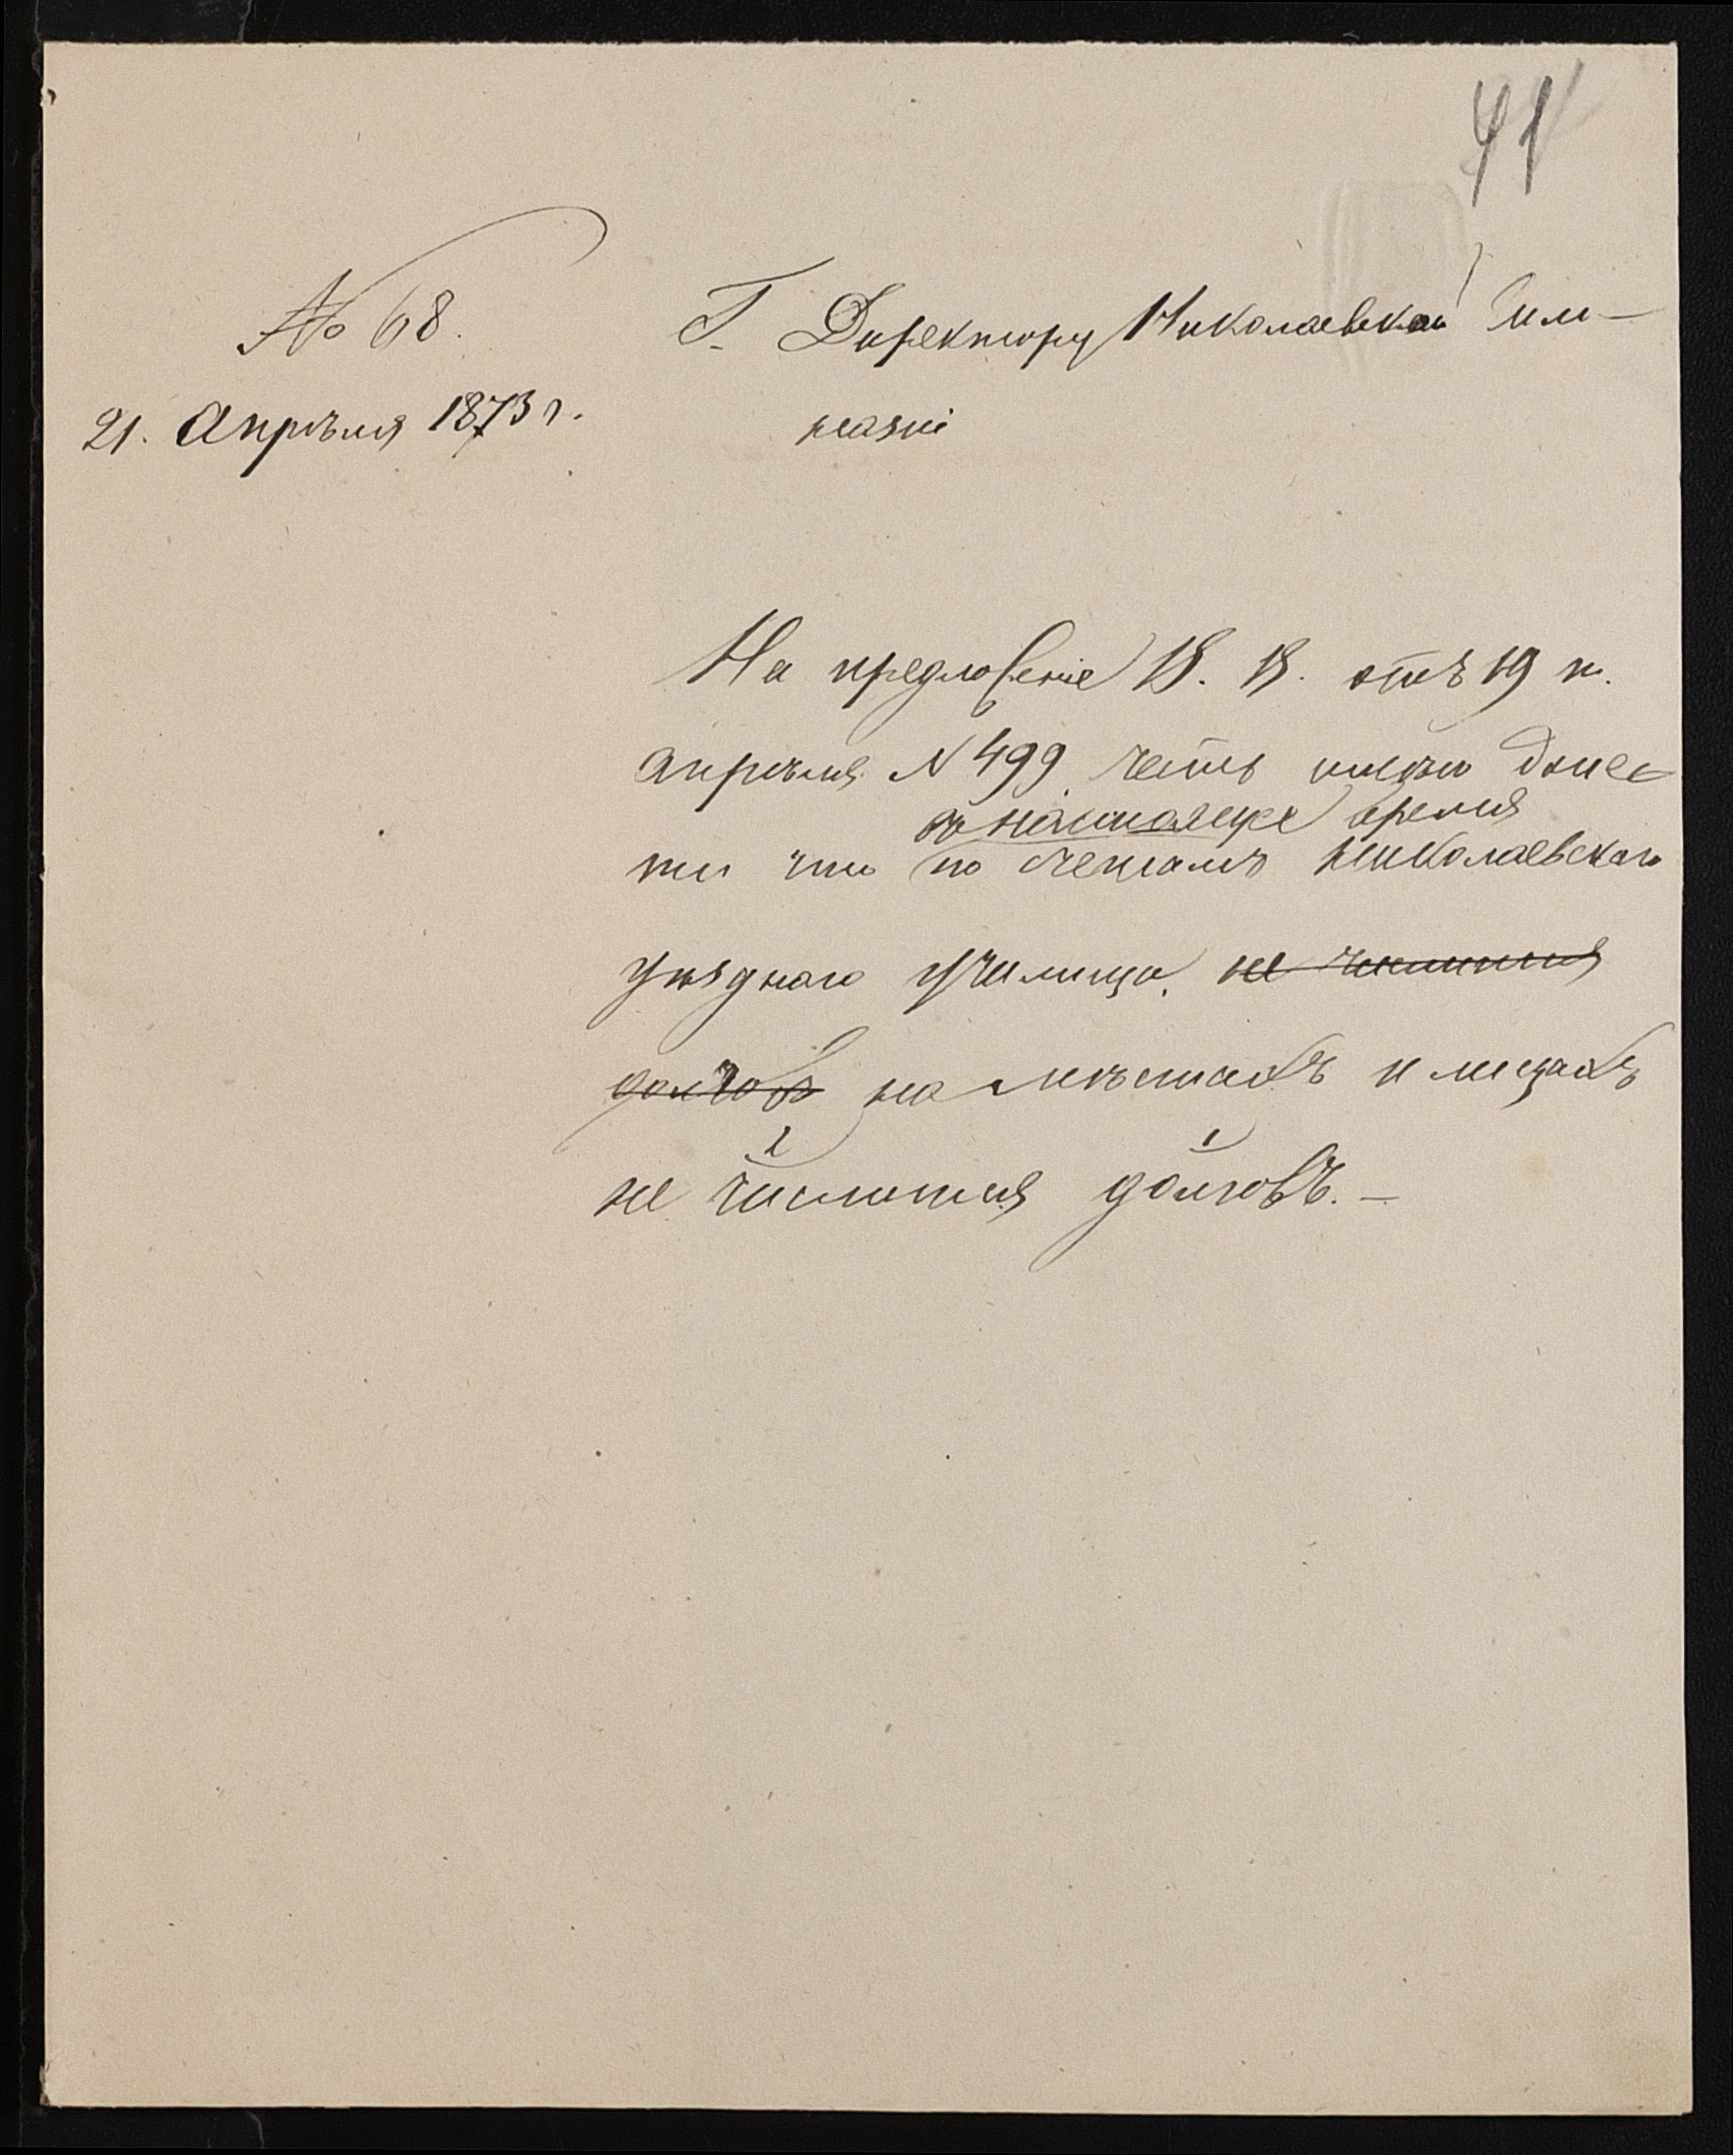 41
№ 68.
21. Апрѣля 1873 г.
Г. Директору Николаевской Гим-
назіи
На предложеніе В. В. отъ 19 н.
апрѣля N 499 честь имѣю донес
въ настоящее время
ти что по счетамъ Николаевскаго
уѣзднаго училища, не числится
долговъ на мѣстахъ и лицахъ
2 1
не числится долговъ. —